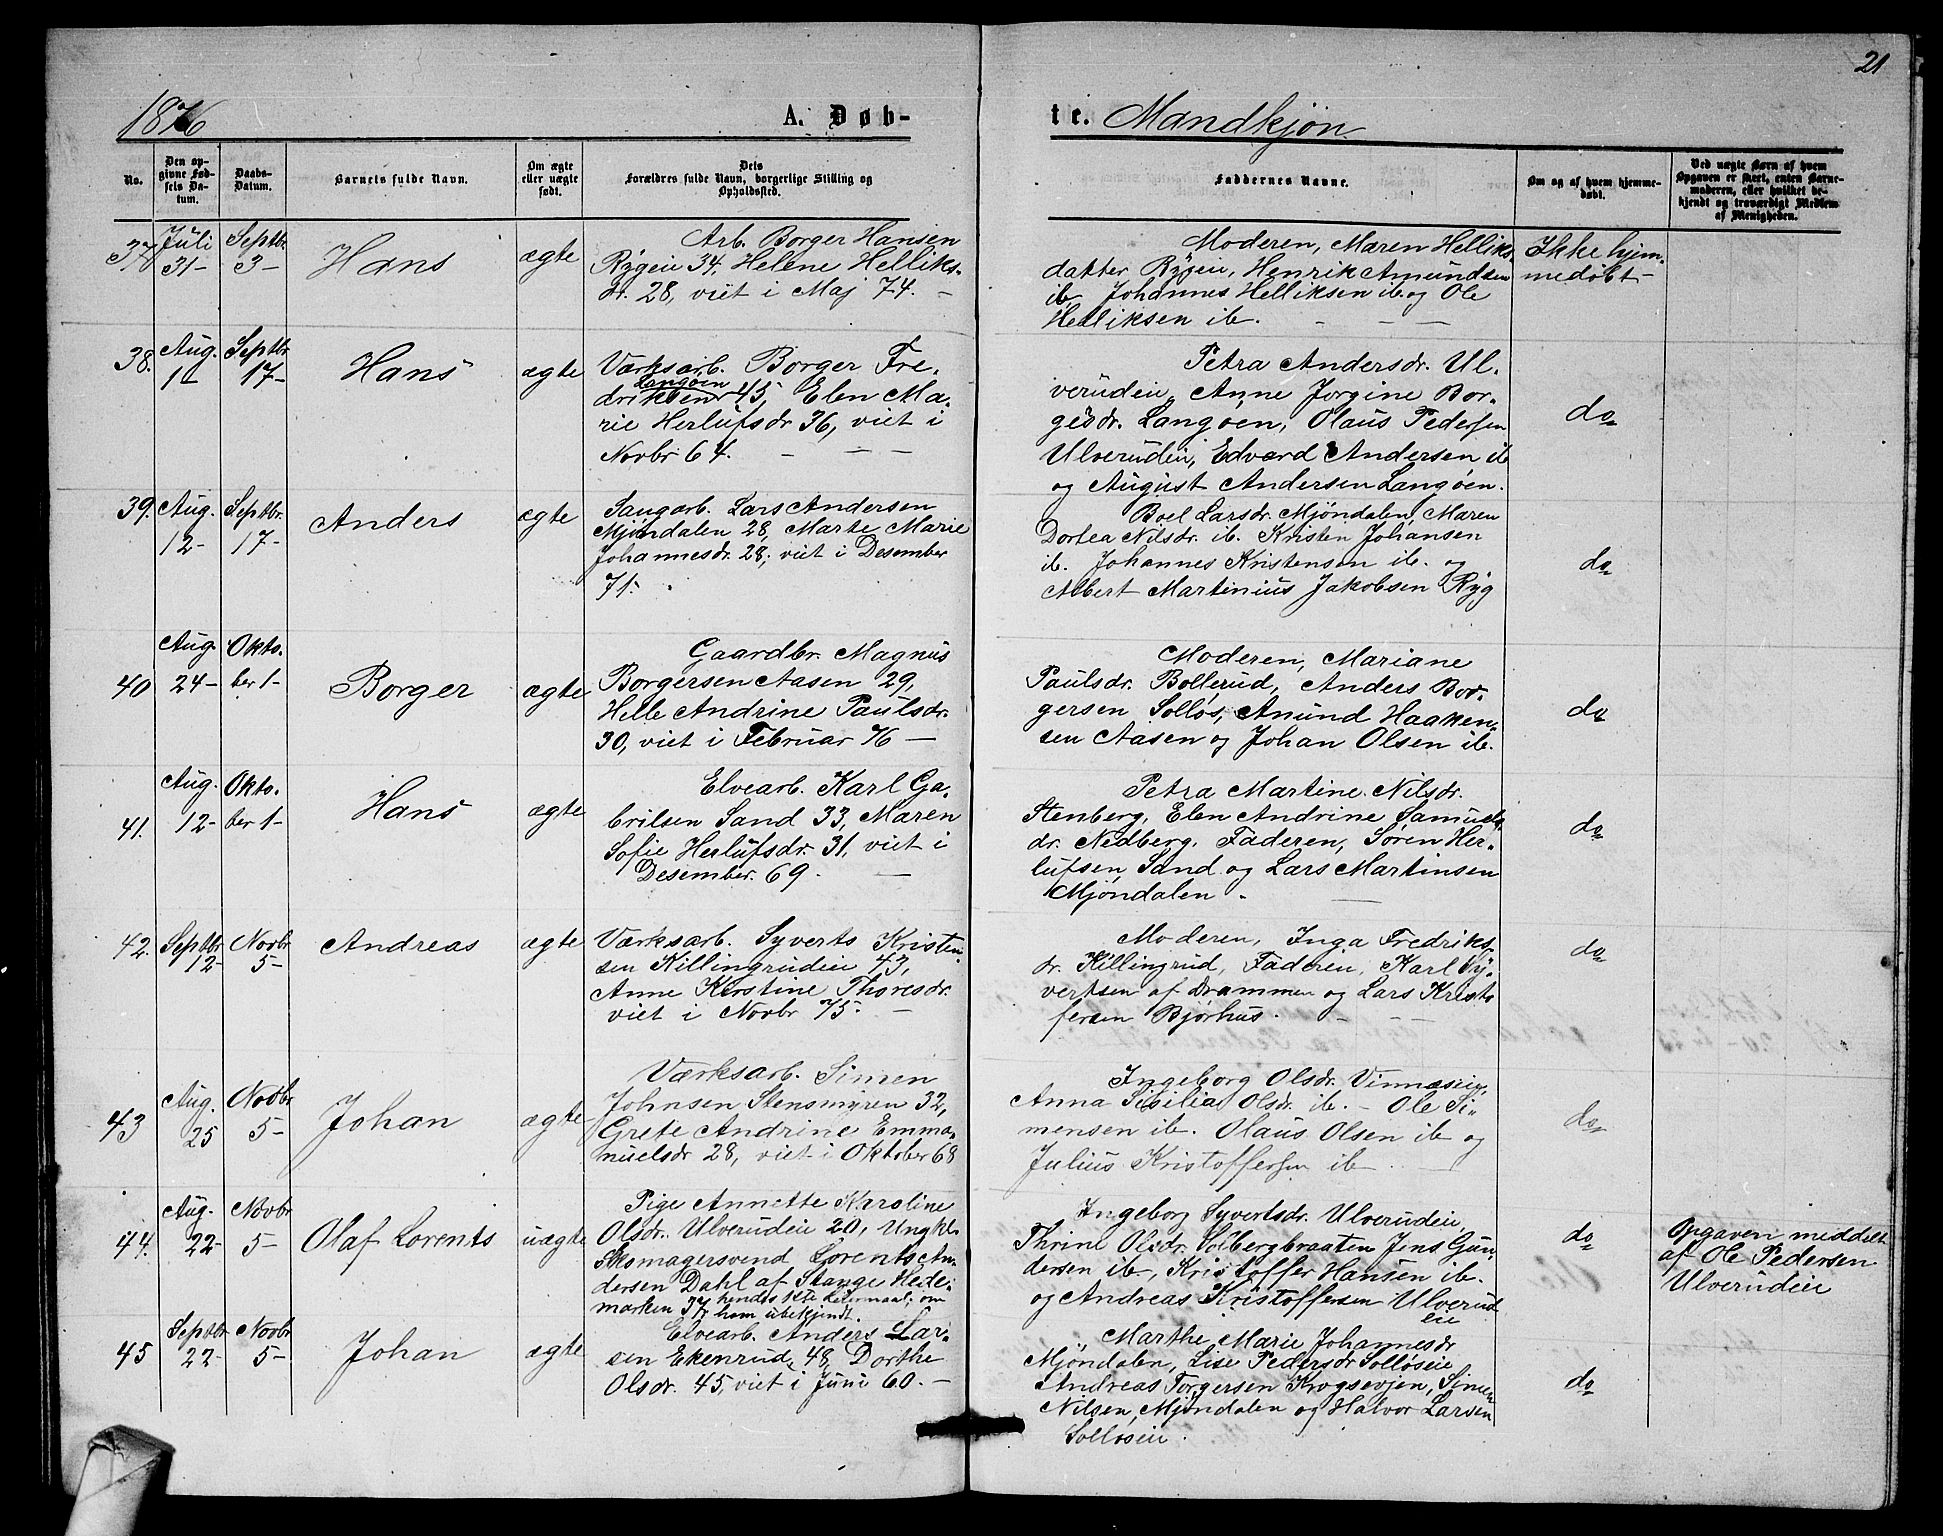 21
1876
A. Døb-
te. Mandkjøn
No.
Den op-
givne Fød-
sels Da-
tum.
Daabs-
Datum.
Barnets fulde Navn.
Om ægte
eller uægte
født.
Dets
Forældres fulde Navn, borgerlige Stilling og
Opholdssted.
Faddernes Navne.
Om og af hvem hjemme-
døbt.
Ved uægte Børn af hvem
Opgaven er skeet, enten Barne-
moderen, eller hvilket be-
kjendt og troværdigt Medlem
af Menigheden.
37
Juli
31-
Septbr.
3-
Hans
ægte
Arb. Borger Hansen
Rygeie 34, Helene Helliks-
dr. 28, viet i Maj 74. -
Moderen, Maren Helliks
datter Rygeie, Henrik Amundsen
ib, Johannes Helliksen ib. og Ole
Helliksen ib. - - -
Ikke hjem-
medøbt-
38.
Aug.
1-
Septbr
17-
Hans
ægte
Værksarb. Borger Fre-
Langøen
driksen 45, Elen Ma-
rie Herlufsdr 36, viet i
Novbr 64. - - -
Petra Andersdr. Ul-
verudeie, Anne Jorgine Bor-
gesdr. Langøen, Olaus Pedersen
Ulverudeie, Edvard Andersen ib
og August Andersen Langøen.
do
39.
Aug.
12-
Septbr.
17-
Anders
ægte
Saugarb. Lars Andersen
Mjøndalen 28, Marte Marie
Johannesdr. 28, viet i Desember
71.
Boel Larsdr. Mjøndalen, Maren
Dortea Nilsdr. ib. Kristen Johansen
ib. Johannes Kristensen ib. og
Albert Martinius Jakobsen Ryg
do
40
Aug.
24-
Okto-
ber 1-
Borger
ægte
Gaardbr. Magnus
Borgersen Aasen 29,
Helle Andrine Paulsdr.
30, viet i Februar 76 -
Moderen, Mariane
Paulsdr. Bollerud, Anders Bor-
gersen Solløs, Amund Haaken-
sen Aasen og Johan Olsen ib.
do
41.
Aug.
12-
Okto-
ber 1-
Hans
ægte
Elvearb. Karl Ga-
brilsen Sand 33, Maren
Sofie Herlufsdr. 31, viet i
Desember 69. -
Petra Martine Nilsdr.
Stenberg, Elen Andrine Samuels-
dr. Nedberg. Faderen, Søren Her-
lufsen Sand og Lars Martinsen
Mjøndalen. -
do
42.
Septbr
12-
Novbr
5-
Andreas
ægte
Værksarb. Syverts Kristen-
sen Killingrudeie 43,
Anne Kirstine Thoresdr.
viet i Novbr 75. -
Moderen, Inga Fredriks-
dr. Killingrud, Faderen, Karl Sy-
vertsen af Drammen og Lars Kristo
fersen Bjørhus. - -
do
43
Aug.
25
Novbr
5-
Johan
ægte
Værksarb. Simen
Johnsen Stensmyren 32,
Grete Andrine Emma-
nuelsdr 28, viet i Oktober 68
Ingeborg Olsdr. Vinnæseie,
Anna Sisilia Olsdr. ib. - Ole Si-
mensen ib. Olaus Olsen ib og
Julius Kristoffersen ib. -
do
44.
Aug.
22-
Novbr
5-
Olaf Lorents
uægte
Pige Annette Karoline
Olsdr. Ulverudeie 20, Ungkl.
Skomagersvend Lorents An-
dersen Dahl af Stange Hede-
marken 37, hendes 1ste Leiermaal, om
ham ubekjendt.
Ingeborg Syvertsdr. Ulverudeie,
Thrine Olsdr. Solbergbraaten, Jens Gun-
dersen ib., Kristoffer Hansen ib.
og Andreas Kristoffersen Ulverud
eie
do
Opgaven meddelt
af Ole Pedersen
Ulverudeie
45
Septbr
22-
Novbr
5-
Johan
ægte
Elvearb. Anders Lar-
sen Ekenrud, 48, Dorthe
Olsdr. 45, viet i Juni 60. -
Marthe Marie Johannesdr
Mjøndalen, Lise Pedersdr Solløseie
Andreas Torgersen Krogsevjen, Simen
Nilsen, Mjøndalen og Halvor Larsen
Solløseie.
do